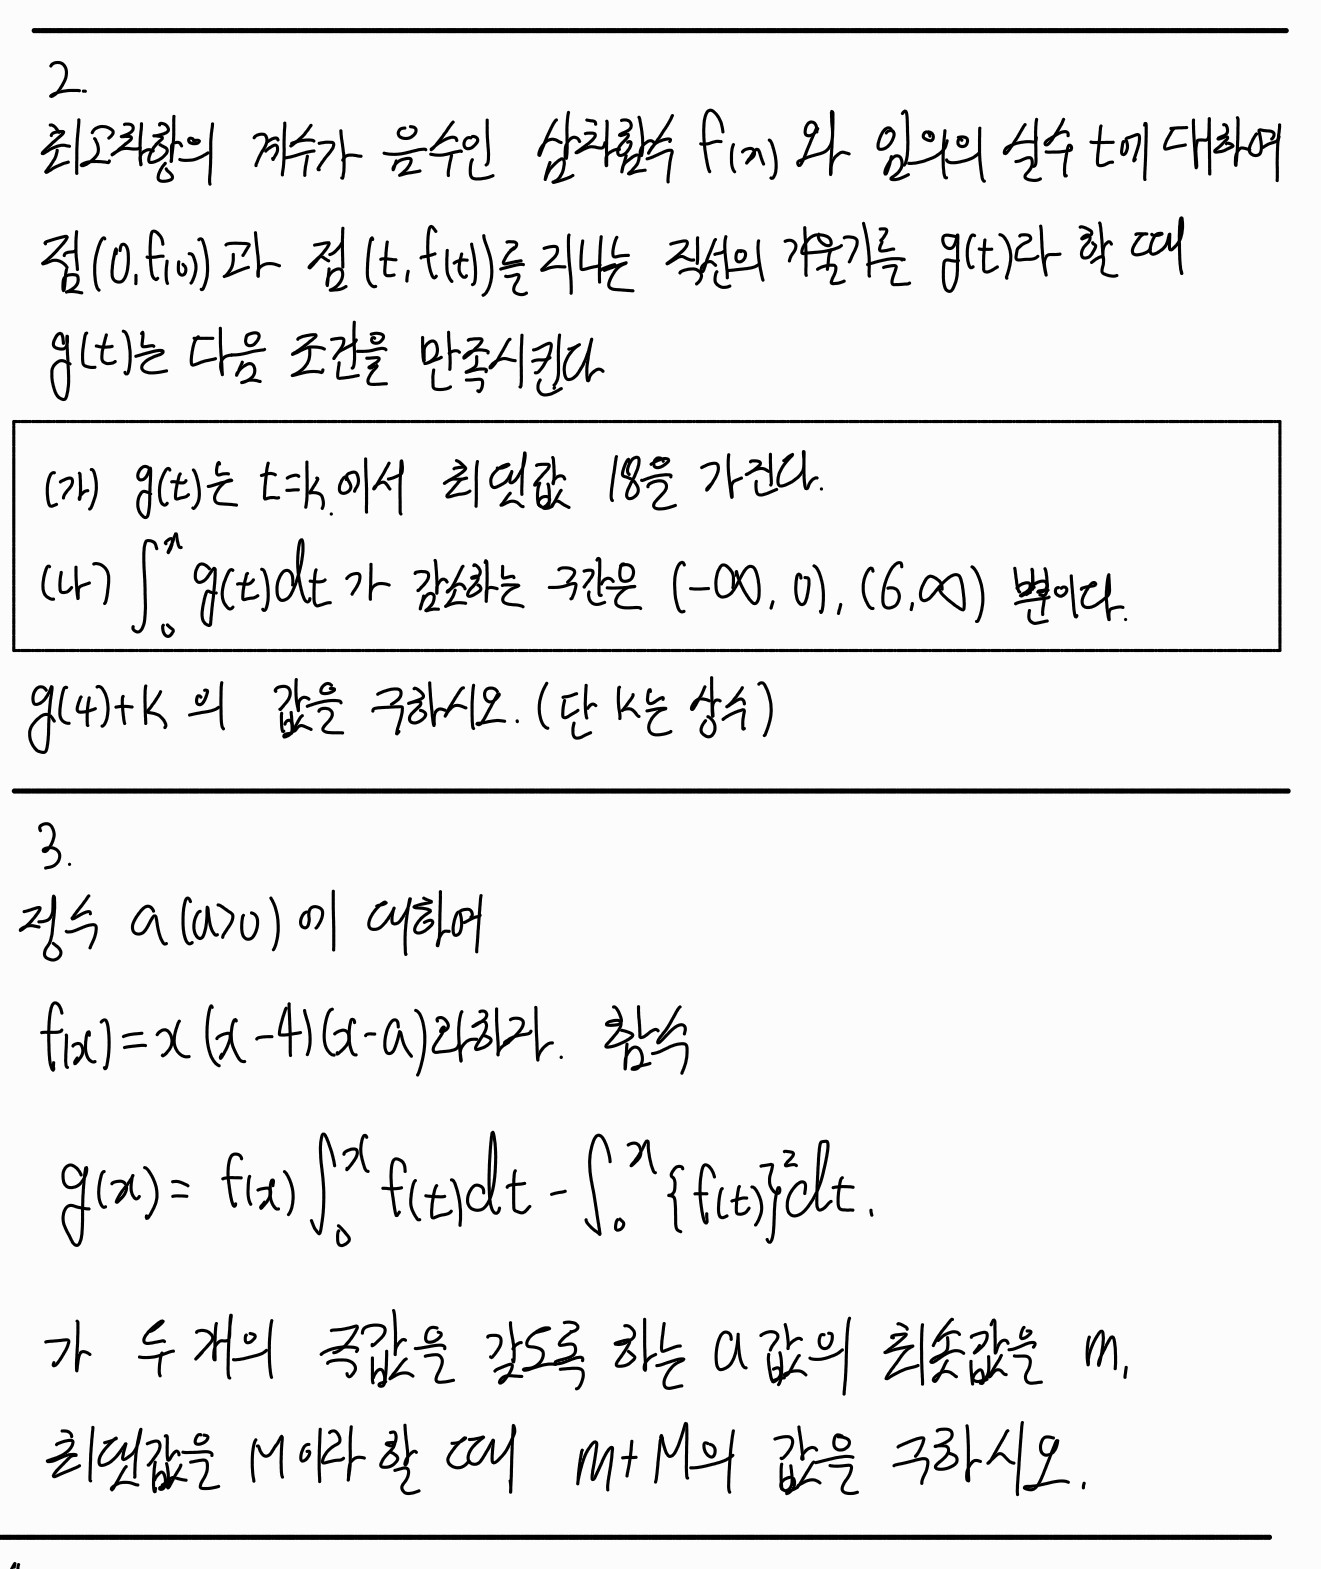 2.
최고차항의 계수가 음수인 삼차함수 f(x) 와 임의의 실수 t에 대하여
점(0, f(0))과 점 (t, f(t))를 지나는 직선의 기울기를 g(t)라 할 때
g(t)는 다음 조건을 만족시킨다
(가) g(t)는 t=k에서 최댓값 18을 가진다.
(나) ∫₀ˣ g(t)dt 가 감소하는 구간은 (-∞, 0), (6, ∞) 뿐이다.
g(4)+k 의 값을 구하시오. (단 k는 상수)
3.
정수 a (a>0) 에 대하여
f(x) = x (x-4)(x-a)라하자. 함수
g(x) = f(x)∫₀ˣ f(t)dt - ∫₀ˣ {f(t)}²dt.
가 두 개의 극값을 갖도록 하는 a 값의 최솟값을 m,
최댓값을 M 이라 할 때 m+M의 값을 구하시오.